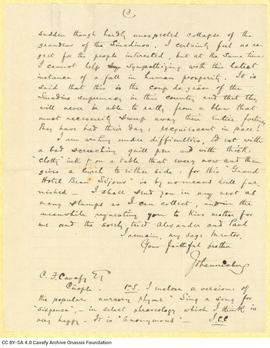 sudden though hardly unexpected collapse of the
grandeur of the Zinadinos. I certainly feel no re-
gret for the people interested, but at the same time
I cannot help sympathizing with this latest
instance of a fall in human prosperity. It is
said that this is the coup de grâce of the
Zinadino supremacy in this country and that they
will never be able to rally from a blow that
must necessarily sweep away their entire fortune
They have had their day; requiescant in pace!
I am writing under difficulties,
with a bad screeching quill pen and with thick
ink on a table that every now and then
gives a lurch to either side; for this "Grand
Hotel Beau Séjour" is by no means well fur-
nished — I shall send you in my next as
many stamps as I can collect, and in the
meanwhile requesting you to kiss mother for
me and the lovely trio Alexander and
I remain, my
Your faithful brother
John Cavafy
C. F. Cavafy Esq
P.S. I enclose a version of the
popular nursery rhyme "Sing a song for
sixpence", in select phraseology which I think is
very happy. It is "Anonymous" — J.C.
CC BY-SA 4.0 Cavafy Archive Onassis Foundation